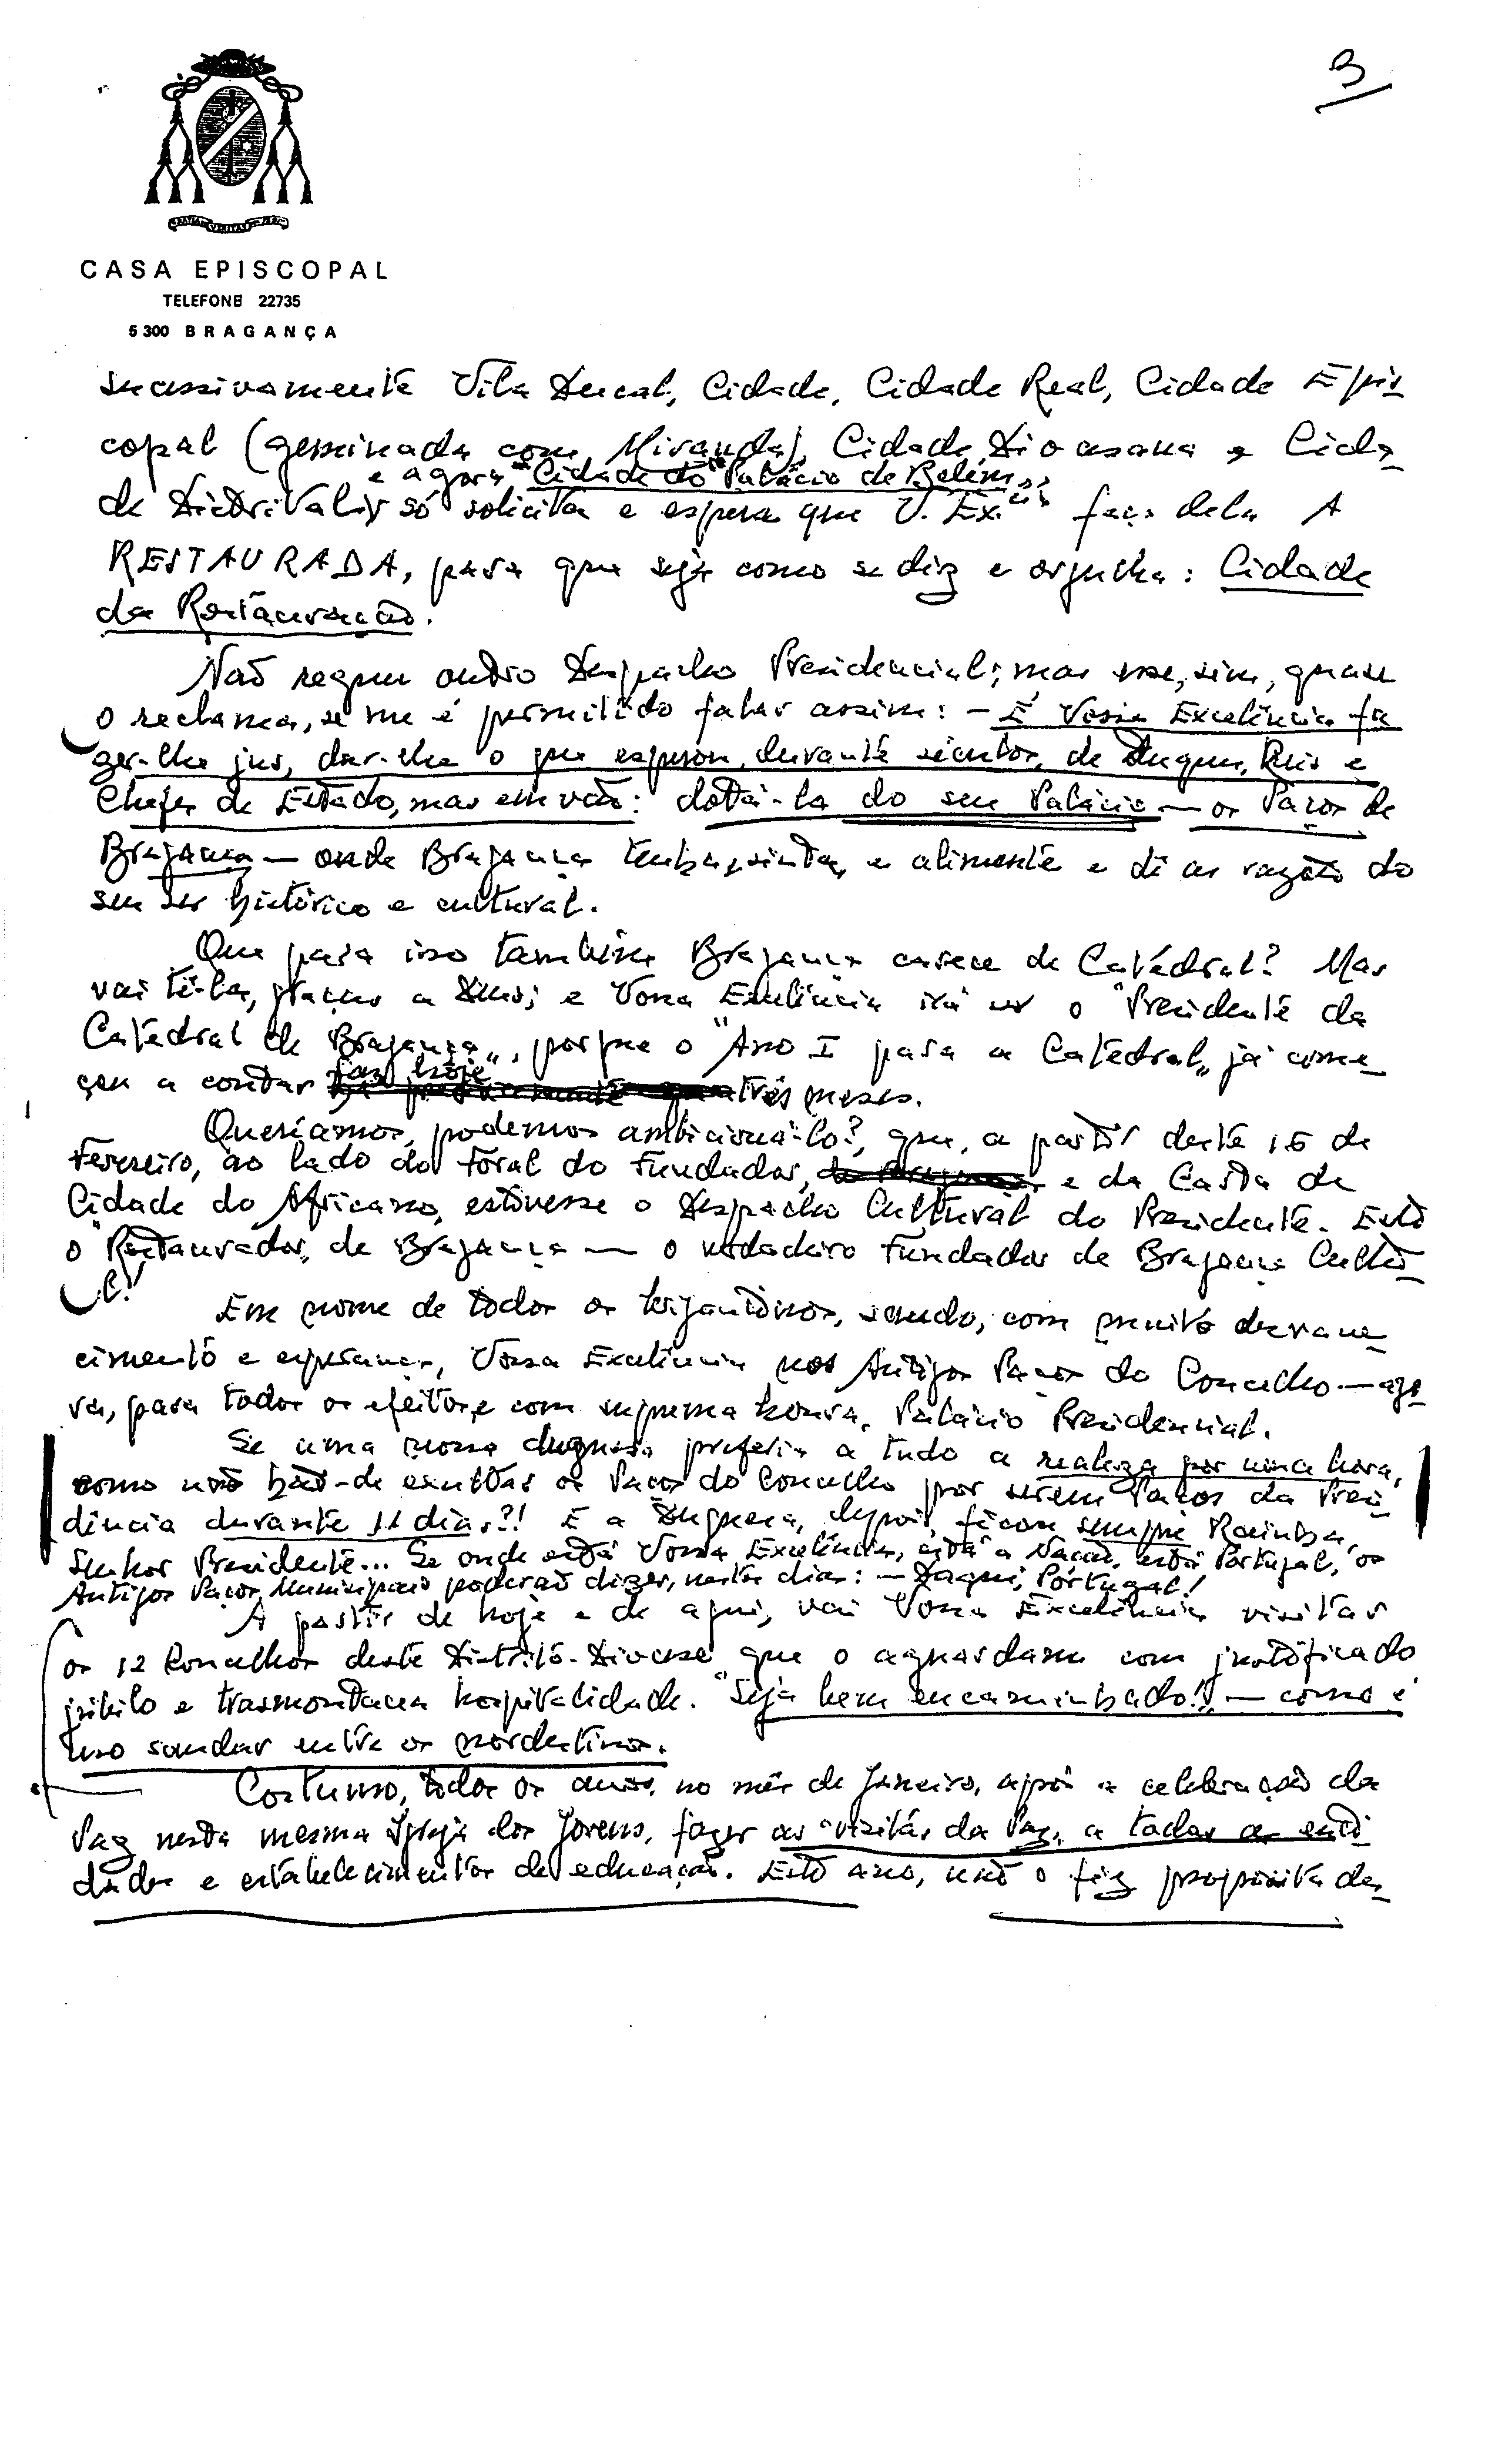 3
CASA EPISCOPAL
TELEFONE 22735
5300 BRAGANÇA
sucessivamente Vila Ducal, Cidade, Cidade Real, Cidade Epis
copal (geminada com Miranda), Cidade Diocesana e Cida
e agora "Cidade do Palácio de Belém",
de Distrital, só solicita e espera que V. Ex.cia faça dela A
RESTAURADA, para que seja como se diz e orgulha: Cidade
da Restauração.
Não requer outro Despacho Presidencial; mas esse, sim, quase
o reclama, se me é permitido falar assim: - É Vossa Excelência fa
zer-lhe jus, dar-lhe o que esperou, durante séculos, de Duques, Reis e
Chefes de Estado, mas em vão: dotá-la do seu Palácio — os Paços de
Bragança — onde Bragança tenha, sinta, e alimente e dê as razões do
seu ser histórico e cultural.
Que para isso também Bragança carece de Catedral? Mas
vai tê-la, graças a Deus; e Vossa Excelência irá ser o "Presidente da
Catedral de Bragança", porque o "Ano I para a Catedral" já come
çou a contar faz hoje três meses.
Queríamos, podemos ambicioná-lo?, que, a partir deste 15 de
Fevereiro, ao lado do Foral do Fundador, e da Carta de
Cidade do Africano, estivesse o Despacho Cultural do Presidente. Este
o "Restaurador" de Bragança — o verdadeiro Fundador de Bragança Cultu
l!
Em nome de todos os brigantinos, saúdo, com muito desvane
cimento e esperança, Vossa Excelência nos Antigos Paços do Concelho — ago
ra, para todos os efeitos e com suprema honra, Palácio Presidencial.
Se uma nossa duquesa preferia a tudo a realeza por uma hora,
como não hão-de exultar os Paços do Concelho por serem Paços da Presi
dência durante 11 dias?! E a Duquesa, depois, ficou sempre Rainha,
Senhor Presidente... Se onde está Vossa Excelência, está a Nação, está Portugal, os
Antigos Paços Municipais poderão dizer, nestes dias: - Daqui, Portugal!
A partir de hoje e de aqui, vai Vossa Excelência visitar
os 12 Concelhos deste Distrito-Diocese que o aguardam com justificado
júbilo e trasmontana hospitalidade. "Seja bem encaminhado!" — como é
uso saudar entre os nordestinos.
Costumo, todos os anos, no mês de Janeiro, após a celebração da
Paz nesta mesma Igreja dos Jovens, fazer as "visitas da Paz" a todas as enti
dades e estabelecimentos de educação. Este ano, não o fiz propositada